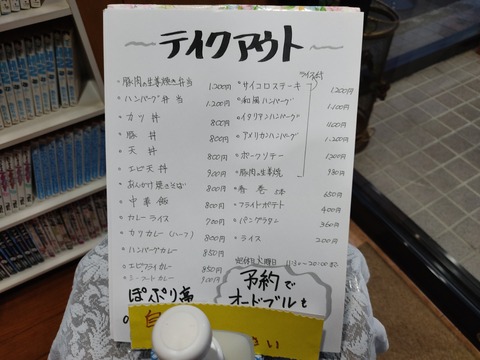 テイクアウト
豚肉の生姜焼き弁当 1,200円
ハンバーグ弁当 1,200円
カツ丼 800円
豚丼 800円
天丼 800円
エビ天丼 900円
あんかけ焼きそば 800円
中華飯 800円
カレーライス 700円
カツカレー(ハーフ) 800円
ハンバーグカレー 850円
エビフライカレー 850円
シーフードカレー 900円
ライス付
サイコロステーキ 1,200円
和風ハンバーグ 1,100円
イタリアンハンバーグ
アメリカハンバーグ 1,200円
ポークソテー 1,200円
豚肉の生姜焼
春巻 5本 650円
フライドポテト 400円
パングラタン 360円
ライス 200円
定休日 火曜日
ぽぷり高
予約で
オードブルも
さい